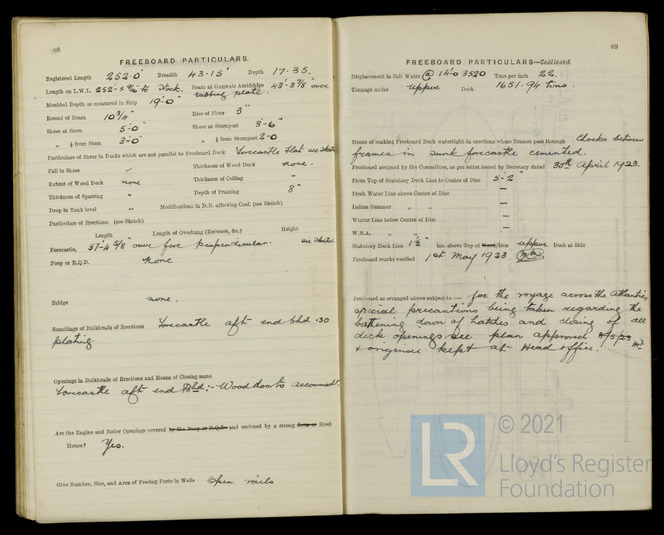 88
FREEBOARD PARTICULARS.
Registered Length 252·0' Breadth 43·15' Depth 17·35.
Length on L.W.L. 252'-5 to Beam at Gunwale Amidships 43'-3⅞" over
rubbing plate.
Moulded Depth as measured in Ship 19'-0"
Round of Beam 10¾" Rise of Floor 3"
Sheer at Stem 5'-0" Sheer at Sternpost 3'-6"
" ⅛ from Stem 3'-0" " ⅛ from Sternpost 2'-0
Particulars of Sheer in Decks which are not parallel to Freeboard Deck Forecastle flat see sketch
Fall in Sheer Thickness of Wood Deck none.
Extent of Wood Deck none Thickness of Ceiling "
Thickness of Sparring " Depth of Framing 8"
Drop in Tank level " Modifications in D.B. affecting Coef. (see Sketch)
Particulars of Erections (see Sketch)
Length Length of Overhang (Recesses, &c.) Height
Forecastle, 37'-4⅝" over fore perpendicular. see sketch
Poop or R.Q.D. None
Bridge none.
Scantlings of Bulkheads of Erections Forecastle aft end bhd ·30
plating.
Openings in Bulkheads of Erections and Means of Closing same
Forecastle aft end Bhd:- Wood doors
Are the Engine and Boiler Openings covered by the Poop or R.Q.D. and enclosed by a strong Iron or Steel
House? Yes.
Give Number, Size, and Area of Freeing Ports in Wells Open rails
89
FREEBOARD PARTICULARS—Continued.
Displacement in Salt Water @ 14'-0 3520 Tons per inch 22.
Tonnage under Upper Deck 1651·94 tons.
Means of making Freeboard Deck watertight in erections where Frames pass through Chocks between
frames in sunk forecastle cemented.
Freeboard assigned by the Committee, as per letter issued by Secretary dated 30th April 1923.
From Top of Statutory Deck Line to Centre of Disc 5-2"
Fresh Water Line above Centre of Disc —
Indian Summer " " —
Winter Line below Centre of Disc —
W.N.A. " " —
Statutory Deck Line 1½" Ins. above Top of Wood/Iron upper Deck at Side
Freeboard marks verified 1st May 1923
Freeboard as arranged above subject to :— for the voyage across the Atlantic,
special precautions being taken regarding the
battening down of hatches and closing of all
deck openings. see plan approved
kept at Head office.
LR
© 2021
Lloyd's Register
Foundation